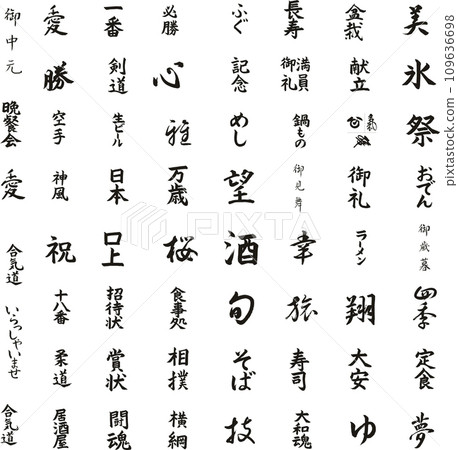 御中元
愛
一番
必勝
ふぐ
長寿
盆栽
美
勝
剣道
心
記念
満員御礼
献立
氷
晩餐会
空手
生ビール
雅
めし
鍋もの
祭
愛
神風
日本
万歳
望
御見舞
御礼
おでん
合気道
祝
口上
桜
酒
幸
ラーメン
御歳暮
いらっしゃいませ
十八番
招待状
食事処
旬
旅
翔
四季
柔道
賞状
相撲
そば
寿司
大安
定食
合気道
居酒屋
闘魂
横綱
技
大和魂
ゆ
夢
PIXTA
pixtastock.com - 109636698